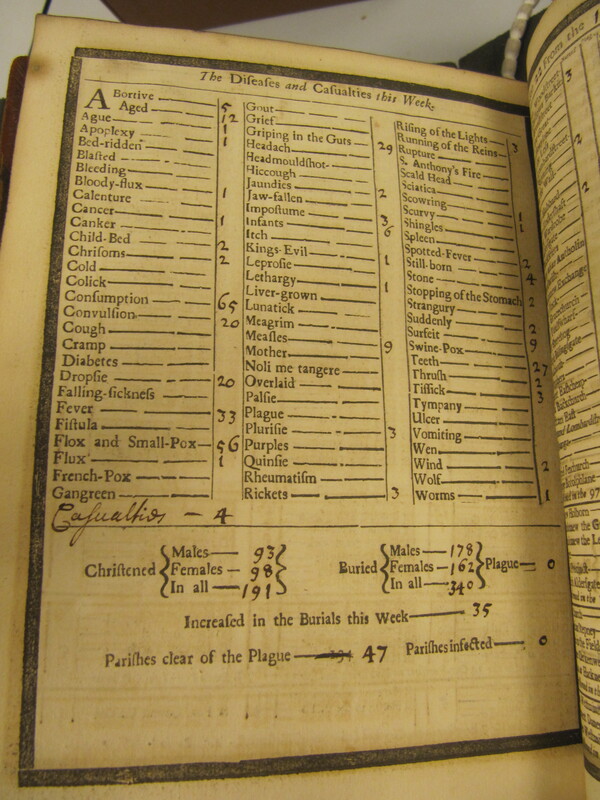 The Diſeaſes and Caſualties this Week.
Abortive 5
Aged 12
Ague 1
Apoplexy 1
Bed-ridden
Blaſted
Bleeding
Bloody-flux
Calenture 1
Cancer
Canker 1
Child-Bed 2
Chriſoms 2
Cold
Colick
Conſumption 65
Convulſion 20
Cough
Cramp
Diabetes
Dropſie 20
Falling-ſickneſs
Fever 33
Fiſtula
Flox and Small-Pox 56
Flux 1
French-Pox
Gangreen
Gout
Grief
Griping in the Guts 29
Headach
Headmouldſhot
Hiccough
Jaundies 2
Jaw-fallen
Impoſtume 3
Infants 6
Itch
Kings-Evil 1
Leproſie
Lethargy 1
Liver-grown
Lunatick
Meagrim
Meaſles 9
Mother
Noli me tangere
Overlaid
Palſie
Plague
Pluriſie 3
Purples
Quinſie
Rheumatiſm
Rickets 3
Riſing of the Lights 3
Running of the Reins
Rupture
S. Anthony's Fire
Scald Head
Sciatica
Scowring
Scurvy 1
Shingles 1
Spleen
Spotted-Fever 2
Still-born 4
Stone
Stopping of the Stomach 2
Strangury
Suddenly 2
Surfeit 9
Swine-Pox
Teeth 27
Thruſh 2
Tiſſick 3
Tympany
Ulcer
Vomiting
Wen
Wind 2
Wolf
Worms 1
Caſualties — 4
Chriſtened { Males — 93 Females — 98 In all — 191 }
Buried { Males — 178 Females — 162 In all — 340 } Plague — 0
Increaſed in the Burials this Week — 35
Pariſhes clear of the Plague — 47 Pariſhes infected — 0